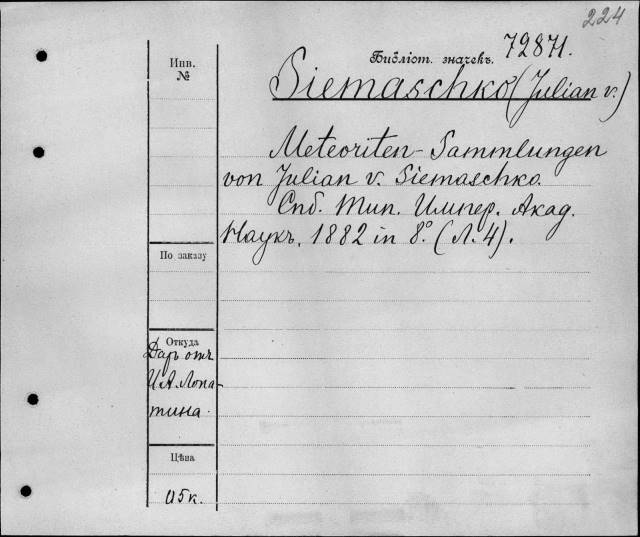 224
Библіот. значекъ. 72871.
Инв.
№
Siemaschko (Julian v.)
Meteoriten-Sammlungen
von Julian v. Siemaschko.
Спб. Тип. Импер. Акад.
Наукъ, 1882 in 8.° (Л. 4).
По заказу
Откуда
Даръ отъ
И.А. Лопа-
тина.
Цѣна
к.